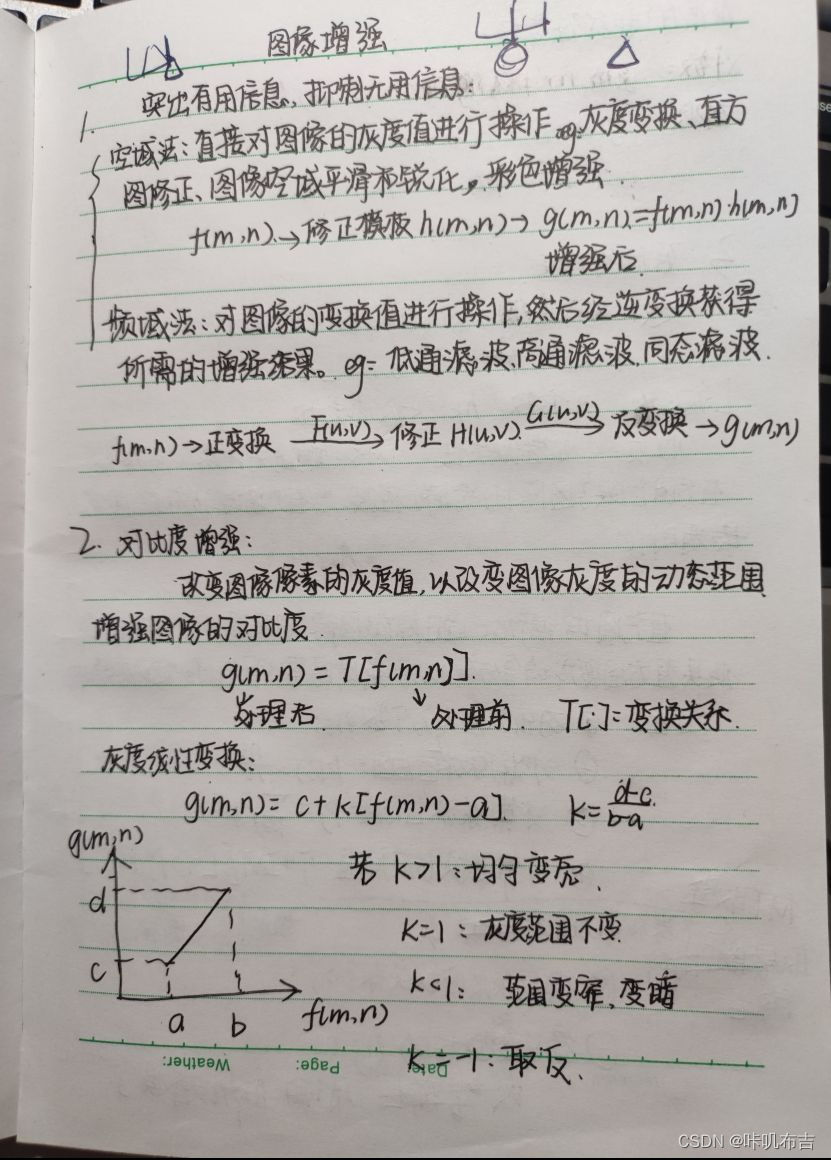 图像增强
1. 突出有用信息,抑制无用信息:
空域法:直接对图像的灰度值进行操作 eg.灰度变换、直方
图修正、图像空域平滑和锐化,彩色增强.
f(m,n)→修正模板h(m,n)→g(m,n)=f(m,n)·h(m,n)
增强后
频域法:对图像的变换值进行操作,然后经逆变换获得
所需的增强结果。eg:低通滤波、高通滤波、同态滤波.
f(m,n)→正变换 F(u,v)→ 修正H(u,v) G(u,v)→ 反变换→g(m,n)
2. 对比度增强:
改变图像像素的灰度值,以改变图像灰度的动态范围
增强图像的对比度.
g(m,n)=T[f(m,n)].
处理后 ↓处理前 T[·]:变换关系.
灰度线性变换:
g(m,n)=c+k[f(m,n)-a]. k=(d-c)/(b-a)
g(m,n)
d
c
a b f(m,n)
若 k>1:均匀变亮.
k=1:灰度范围不变
k<1:范围变窄、变暗
k=-1:取反.
Date: Page: Weather:
CSDN @咔叽布吉